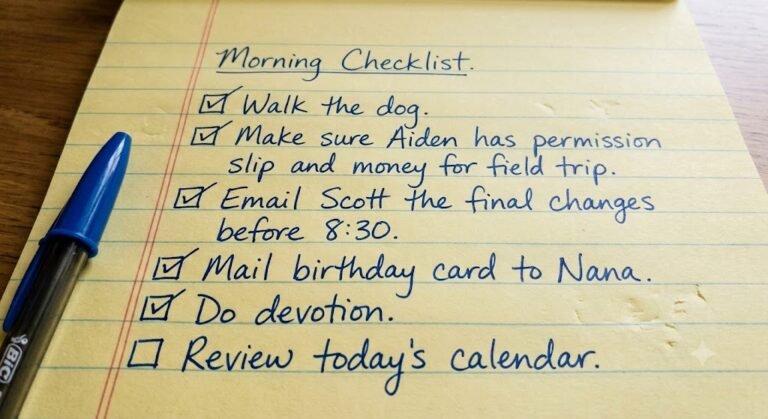 Morning Checklist.
☑ Walk the dog.
☑ Make sure Aiden has permission
slip and money for field trip.
☑ Email Scott the final changes
before 8:30.
☑ Mail birthday card to Nana.
☑ Do devotion.
☐ Review today's calendar.
BIC